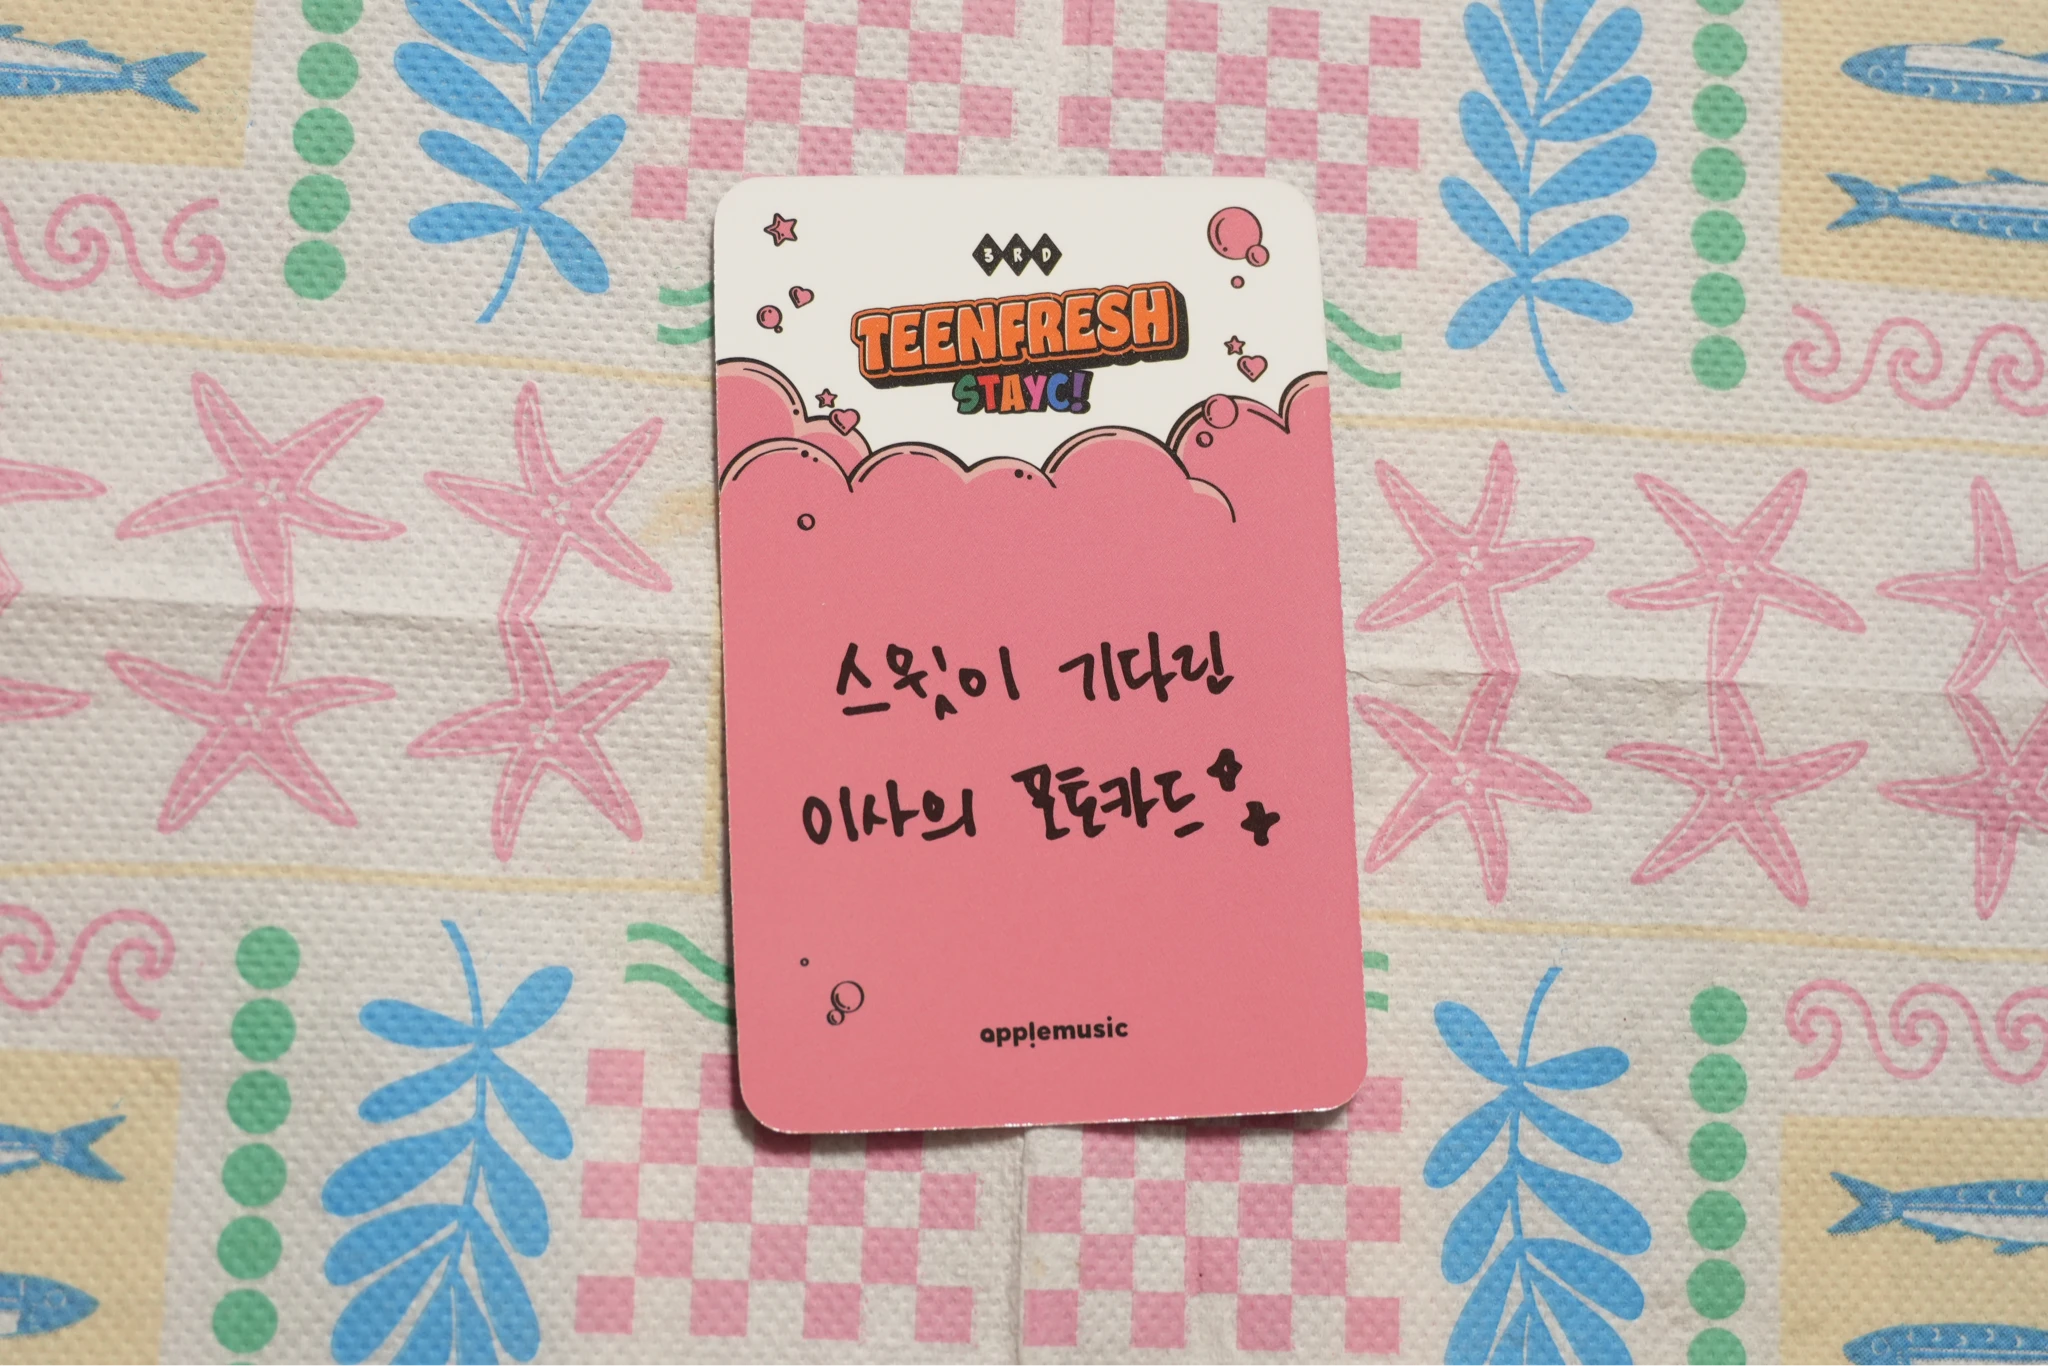 3RD
TEENFRESH
STAYC!
스윗이 기다린
이사의 포토카드
applemusic